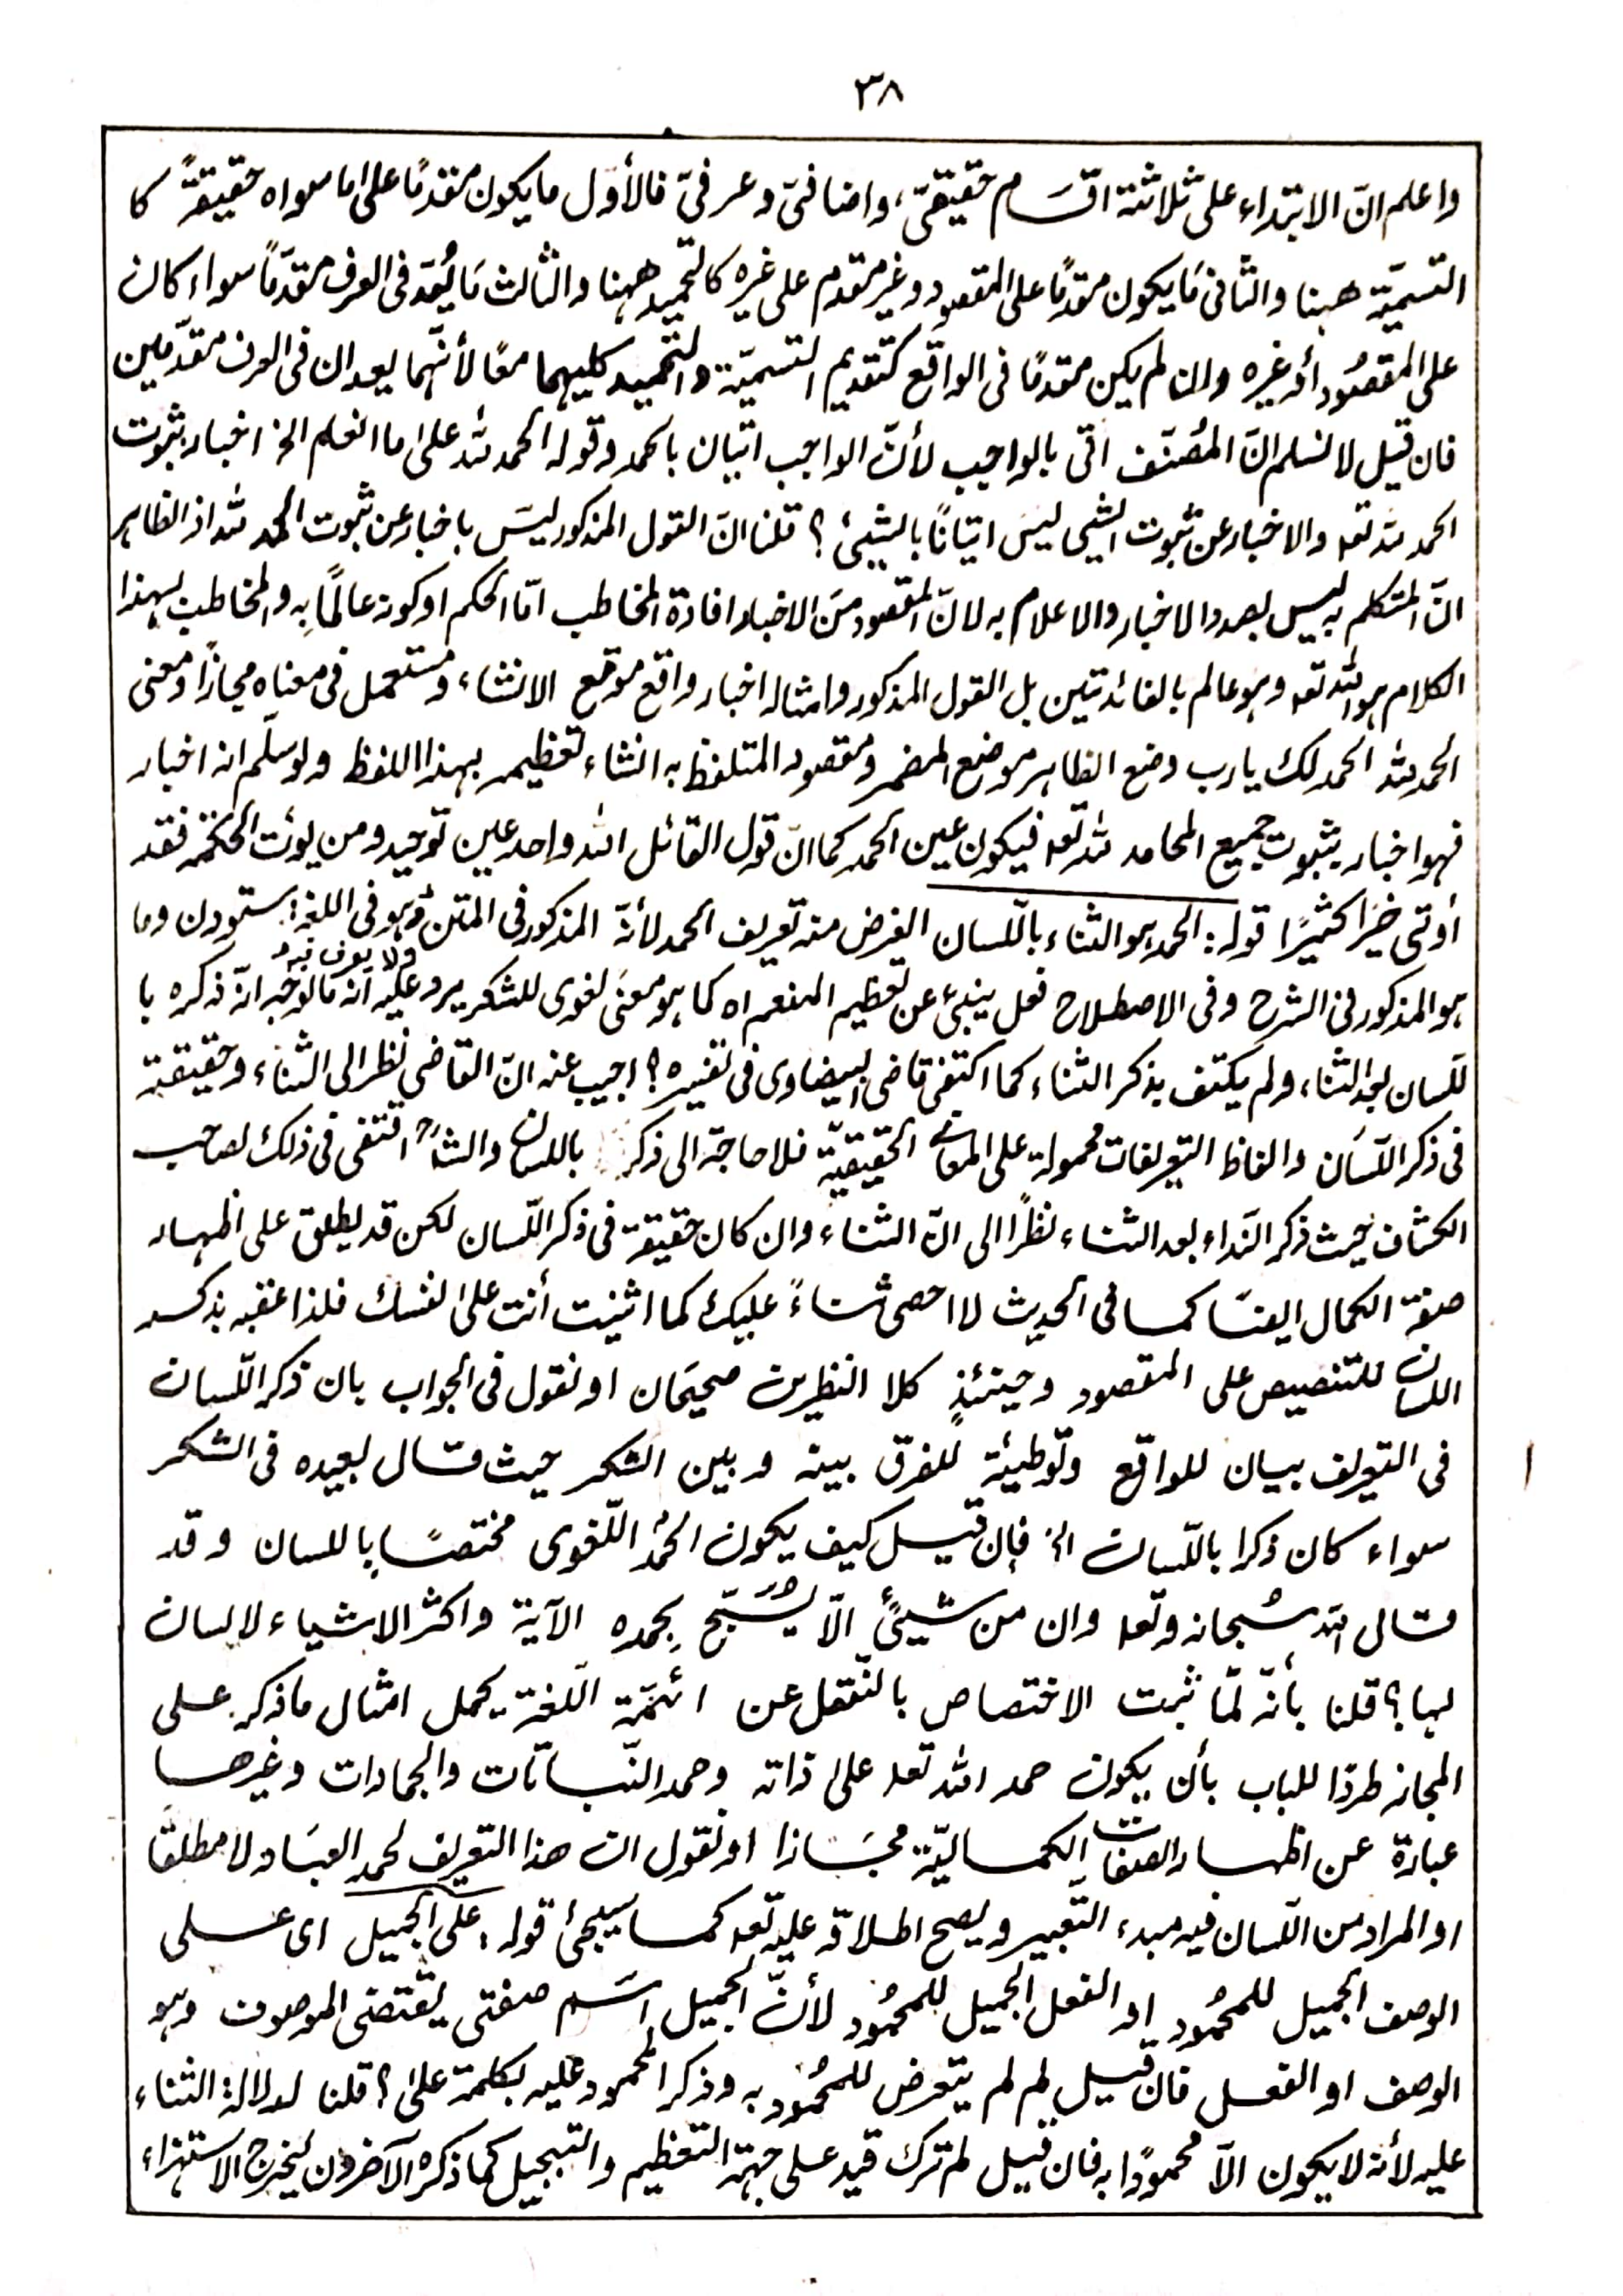 ٣٨
واعلم انّ الابتداء على ثلاثة اقسام حقيقىّ، واضافىّ وعرفىّ فالأوّل ما يكون مقدمًا على ما سواه حقيقةً كا
التسميّة ههنا والثانى مَا يكون مقدمًا على المقصود وغير مقدم على غيره كالتحميد ههنا والثالث مَا يُعَدّ فى العرف مقدّمًا سواء كان
على المقصُود أو غيره وان لم يكن مقدمًا فى الواقع كتقديم التسميّة والتحميد كليهما معًا لأنّهما يعدان فى العرف مقدّمين
فان قيل لا نسلم انّ المُصنّف اتى بالواجب لأنّ الواجب اتيان بالحمد وقوله الحمد لله على ما انعم الخ اخبار بثبوت
الحمد لله تعہ والاخبار عن ثبوت الشيى ليسَ اتيانًا بالشيئ؟ قلنا انّ القول المذكور ليسَ باخبار عن ثبوت الحمد لله اذ الظاہر
انّ المتكلم به ليس بصدد الاخبار والاعلام به لانّ المقصود مِنَ الاخبار افادة المخاطب امّا الحكم او كونہ عالمًا بِه والمخاطب بهذا
الكلام ہو اللہ تعہ وہو عالم بالفائدتين بل القول المذكور وامثالہ اخبار واقع موقع الانشاء، ومستعمل فى معناه مجازًا ومعنى
الحمد للہ الحمد لك يا رب وضع الظاہر موضع المضمر ومقصود المتلفظ به انشاء تعظيمہ بہذا اللفظ ولو سلّم انہ اخبار
فہو اخبار بثبوت جميع المحامد للہ تعہ فيكون عين الحمد كما انّ قول القائل اللہ واحد عين توحيد ومن يؤت الحكمة فقد
أوتى خيرًا كثيرًا قوله: الحمد ہو الثناء باللّسان الغرض منہ تعريف الحمد لأنّہ المذكور فى المتن وہو فى اللغة: ستودن وما
ہو المذكور فى الشرح وفى الاصطلاح فعل ينبئ عن تعظيم المنعم اه كما ہو معنىً لغوى للشكر يرد عليہ انّہ ما الوجہ انّہ ذكره با
للّسان بعد الثناء، ولم يكتف بذكر الثناء كما اكتفى قاضى البيضاوى فى تفسيره؟ اجيب عنہ انّ القاضى نظر الى الثناء وحقيقتہ
فى ذكر اللّسَان والفاظ التعريفات محمولة على المعانى الحقيقيّة فلا حاجة الى ذكر باللسان والشارح اقتفى فى ذلك لصاحب
الكشاف حيث ذكر النداء بعد الثناء نظرًا الى انّ الثناء وان كان حقيقة فى ذكر اللّسان لكن قد يطلق على اظہار
صفة الكمال ايضًا كما فى الحديث لا احصى ثناءً عليك كما اثنيت أنت على نفسك فلذا عقبہ بذكر
اللسان للتنصيص على المقصود وحينئذٍ كلا النظرين صحيحَان او نقول فى الجواب بان ذكر اللّسان
فى التعريف بيان للواقع وتوطيئة للفرق بينه وبين الشكر حيث قال بعيده فى الشكر
سواء كان ذكرا باللّسان الخ فإن قيل كيف يكون الحمْد اللّغوى مختصًا باللسان وقد
قال اللہ سُبحانہ وتعہ وان من شيئٍ الّا يُسَبّحُ بِحمده الآية واكثر الاشياء لا لسان
لہا؟ قلنا بأنّہ لمّا ثبت الاختصاص بالنّقل عن ائمّة اللّغة يحمل امثال ما ذكر على
المجاز طردًا للباب بأن يكون حمد اللہ تعہ على ذاتہ وحمد النّباتات والجمادات وغيرها
عبارة عن اظہار الصفات الكماليّة مجَازا او نقول ان هذا التعريف لحمد العبَاد لا مطلقًا
او المراد من اللّسان فيہ مبدء التّعبير ويصح اطلاقہ عليہ تعہ كما سيجئ قوله: على الجميل اى على
الوصف الجميل للمحمُود او الفعل الجميل للمحمُود لأنّ الجميل اسَم صفتى يقتضى الموصوف وہو
الوصف او الفعل فان قيل لِم لم يتعرض للمحمُود به وذكر المحمود عليہ بكلمة على؟ قلنا لدلالة الثناء
عليہ لأنہ لا يكون الّا محمودًا به فان قيل لم ترك قيد على جہة التعظيم والتبجيل كما ذكره الآخرون ليخرج الاستہزاء